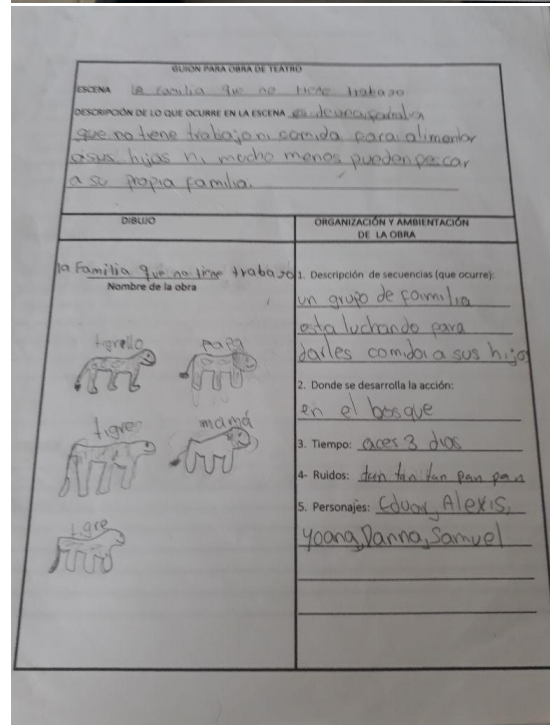 GUION PARA OBRA DE TEATRO
ESCENA la familia que no tiene trabajo
DESCRIPCIÓN DE LO QUE OCURRE EN LA ESCENA es de una familia
que no tene trabajo ni comida para alimentar
a sus hijas ni mucho menos pueden pescar
a su propia familia.
DIBUJO
la Familia que no tiene trabajo
Nombre de la obra
tigrello papá
tigre mamá
tigre
ORGANIZACIÓN Y AMBIENTACIÓN
DE LA OBRA
1. Descripción de secuencias (que ocurre):
un grupo de familia
esta luchando para
darles comida a sus hijo
2. Donde se desarrolla la acción:
en el bosque
3. Tiempo: aces 3 dias
4- Ruidos: tan tan tan pan pan
5. Personajes: Eduar, Alexis,
yoana, Danna, Samuel